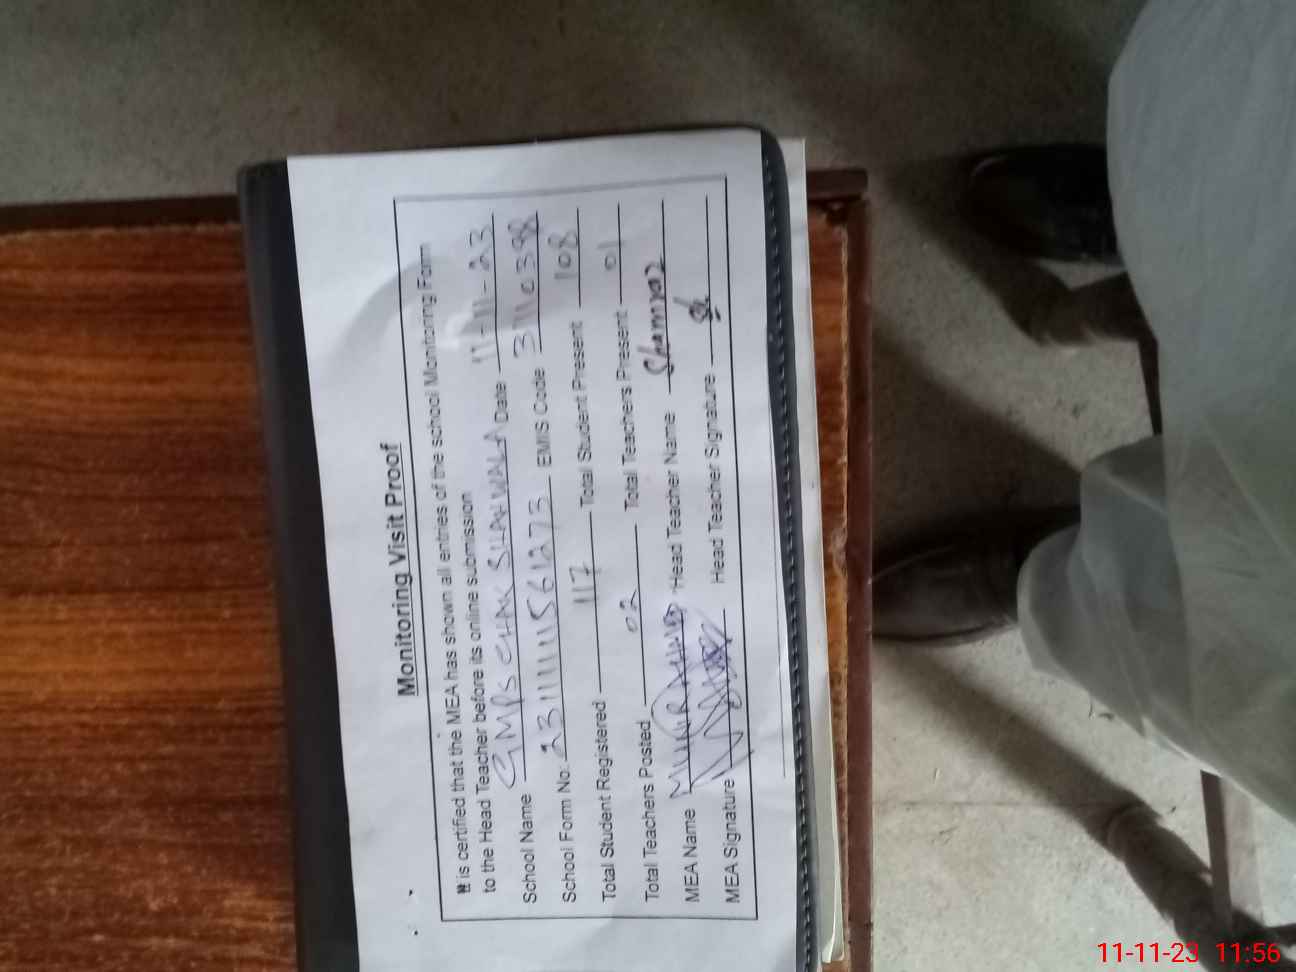 Monitoring Visit Proof
It is certified that the MEA has shown all entries of the school Monitoring Form
to the Head Teacher before its online submission
School Name GMPS CHAK SHAHWALA Date 11-11-23
School Form No: EMIS Code 31110398
Total Student Registered 117 Total Student Present 108
Total Teachers Posted 02 Total Teachers Present 01
MEA Name MUNIR AHMAD Head Teacher Name
MEA Signature Head Teacher Signature
11-11-23 11:56